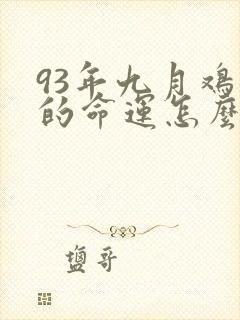 93年九月鸡
的命运怎麽
盐哥